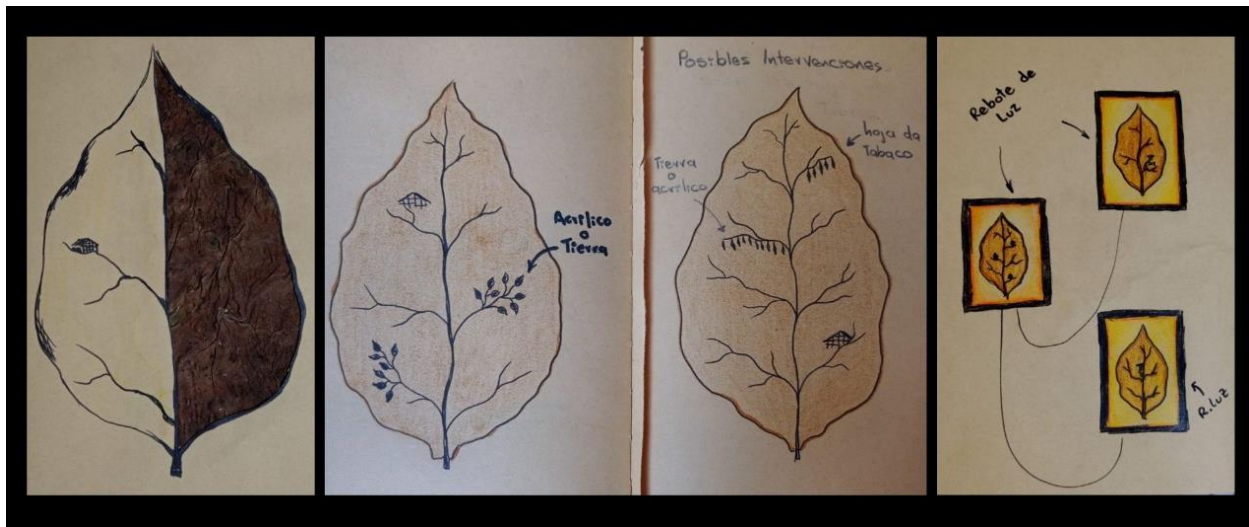 Acrílico
o
Tierra
Posibles Intervenciones
hoja da
Tabaco
Tierra
o
acrílico
Rebote de
Luz
R. Luz